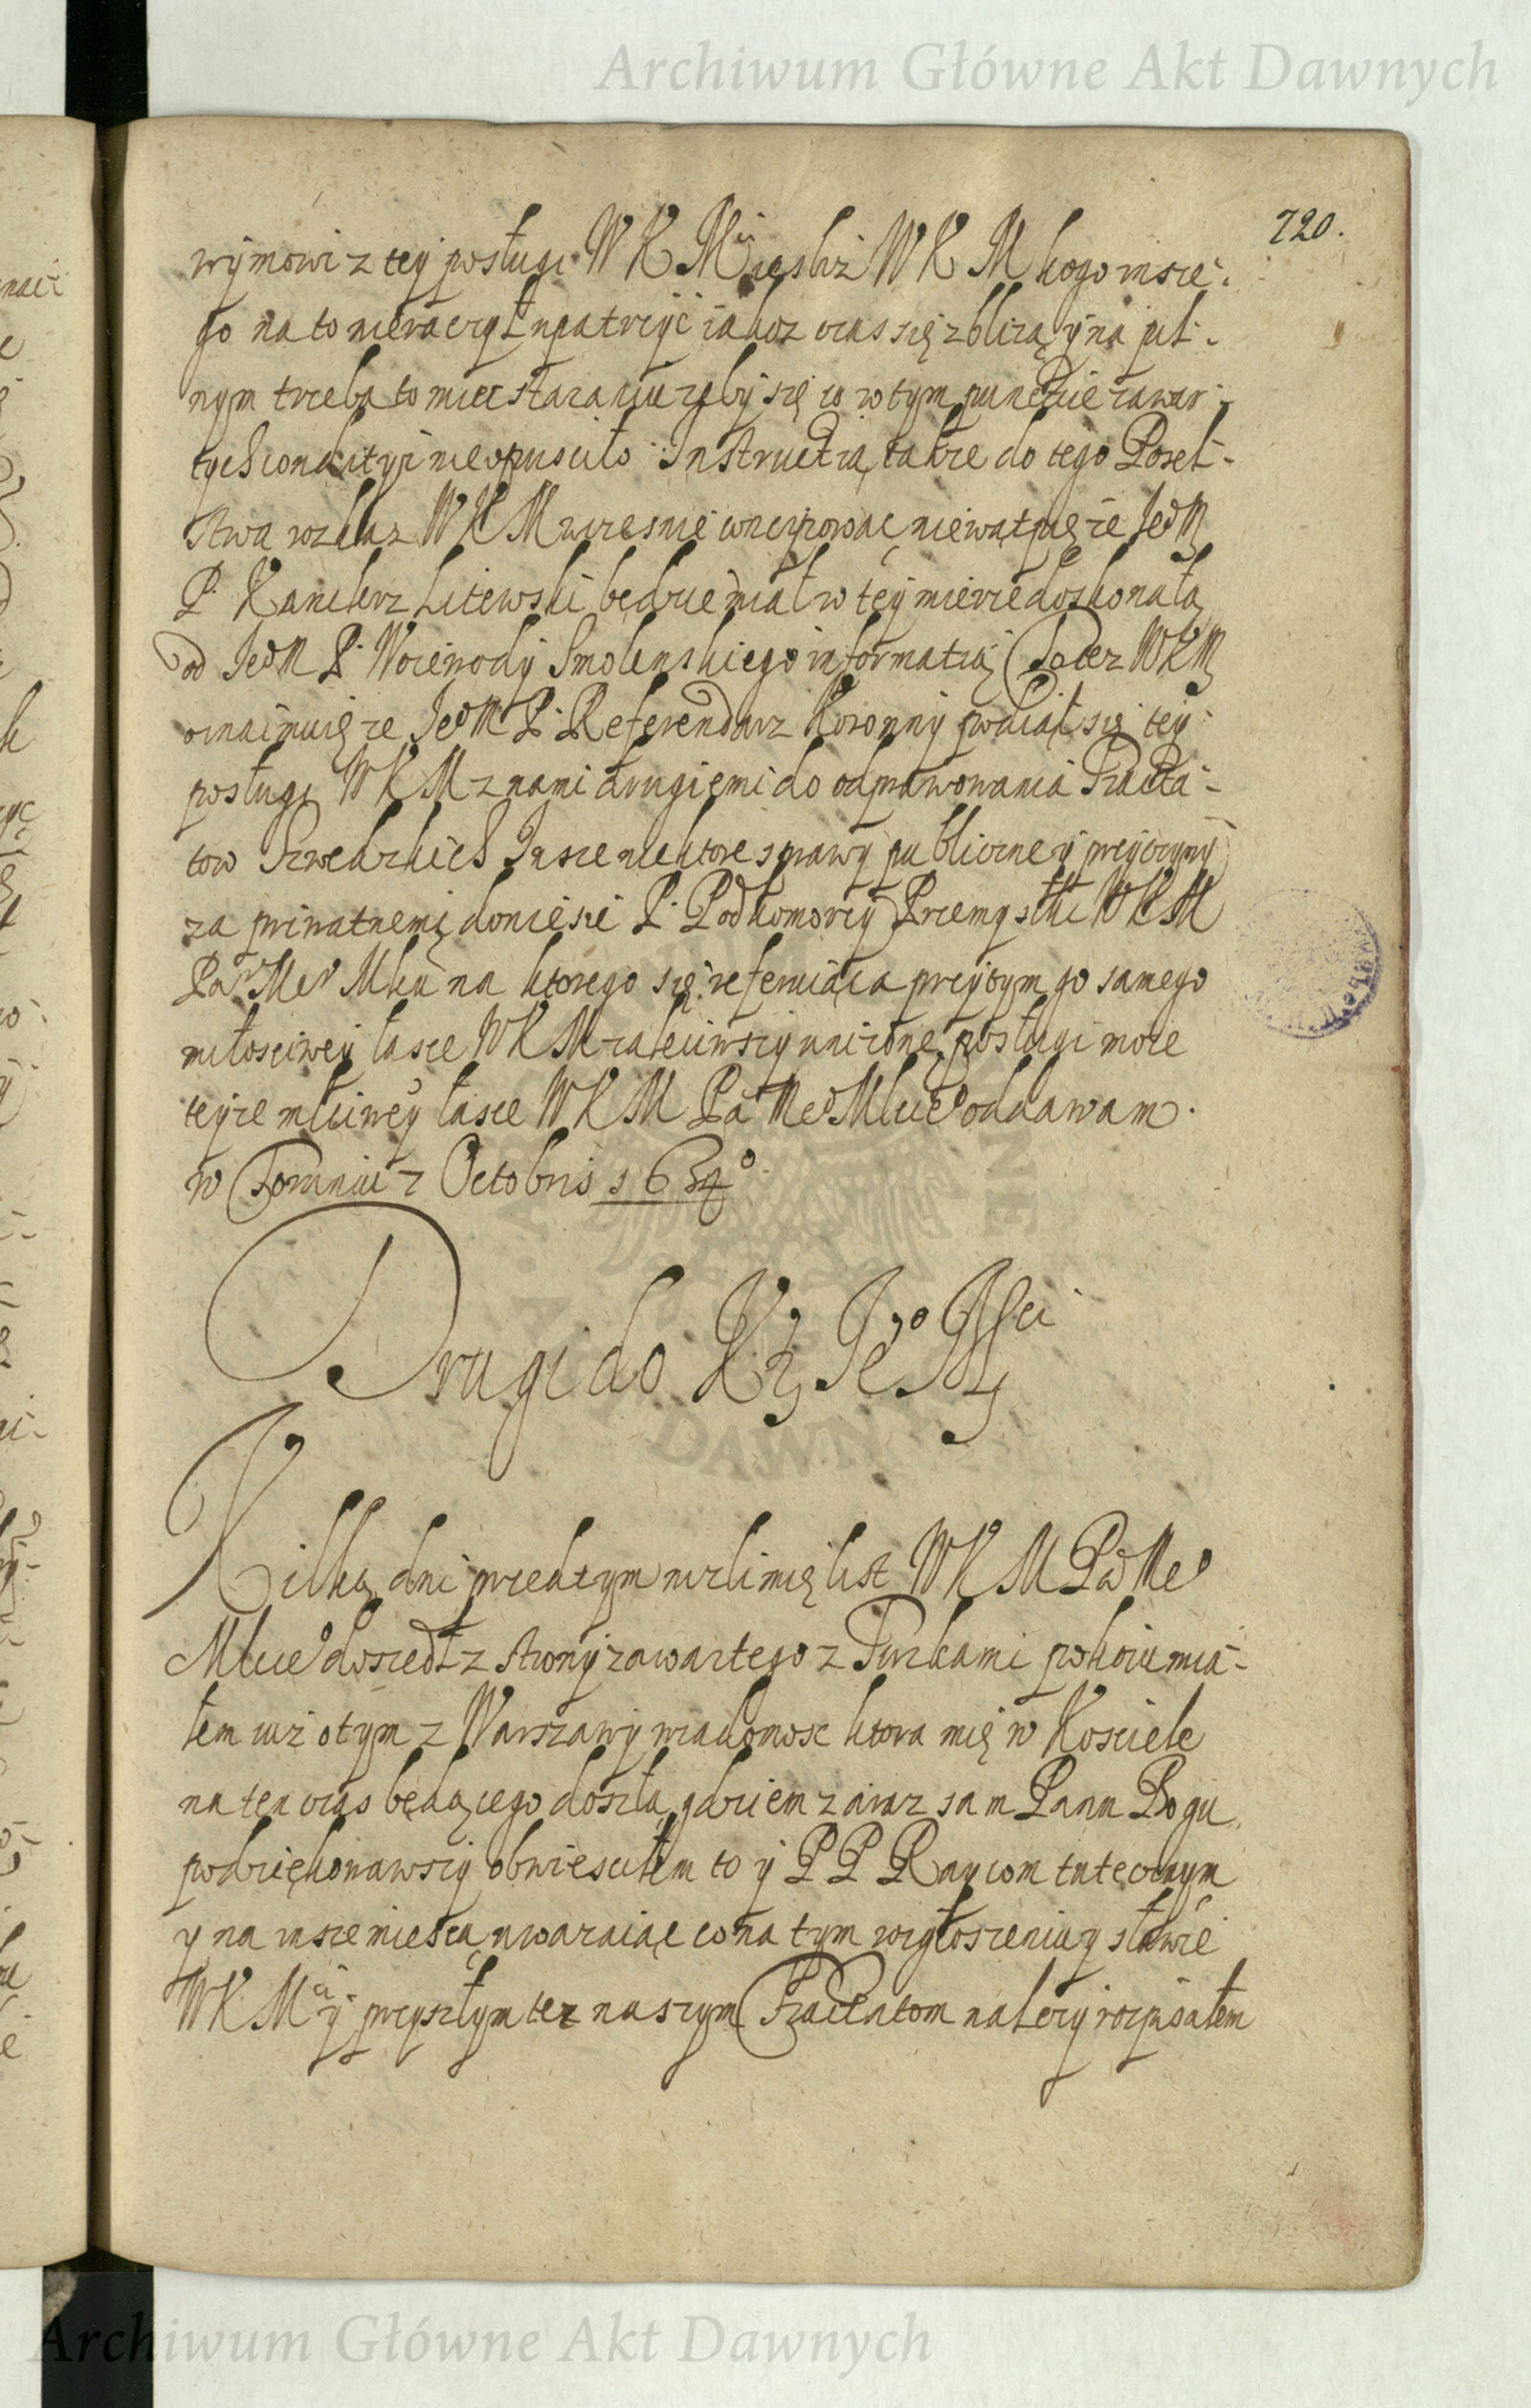 Archiwum Główne Akt Dawnych
720.
wymowi z tey posługi W K Mci ieśliż W K M kogo insze-
go na to nieraczył upatrzyć iakoz czas się zbliza, y na pil-
nym trzeba to miec staraniu zeby się co w tym punctcie zawar-
tych conditiy nieopusciło. Instructią takze do tego Posel-
stwa rozkaz W K M wczesnie concipowac niewątpię ze JeoM
P. Kanclerz Litewski będzie miał w tey mierze doskonałą
od JeoM P. Woiewody Smolenskiego informatią To tez WKM
oznaimuię ze JeoM P. Referendarz Koronny podiął się tey
posługi W K M z nami drugiemi do odprawowania Tracta-
tow Szwedzkich Insze niektore sprawy publiczne y przyczyny
za priwatnemi doniesie P. Podkomorzy Przemysłki W K M
Pa Me Młu na ktorego się referuiąc a przytym go samego
miłosciwey łasce W K M zaleciwszy unizone posługi moie
teyze młciwey łasce W K M Pa Meo Młcieo oddawam.
w Toruniu 7 Octobris 1634o
Drugi do K J Jeo Msci
Kilką dni przedtym nizli mię list W K M Pa Meo
Młcieo doszedł z strony zawartego z Turkami pokoiu mia-
łem iuż o tym z Warszawy wiadomosc ktora mię w Kosciele
na ten czas będącego doszła, gdziem zaraz sam Panu Bogu
podziękowawszy obwiesciłem to y P P Raycom tutecznym
y na insze miesca uwazaiąc co na tym rozgłoszeniu y sławie
W K Mci y przyszłym tez naszym Tractatom nalezy rozpisałem
Archiwum Główne Akt Dawnych